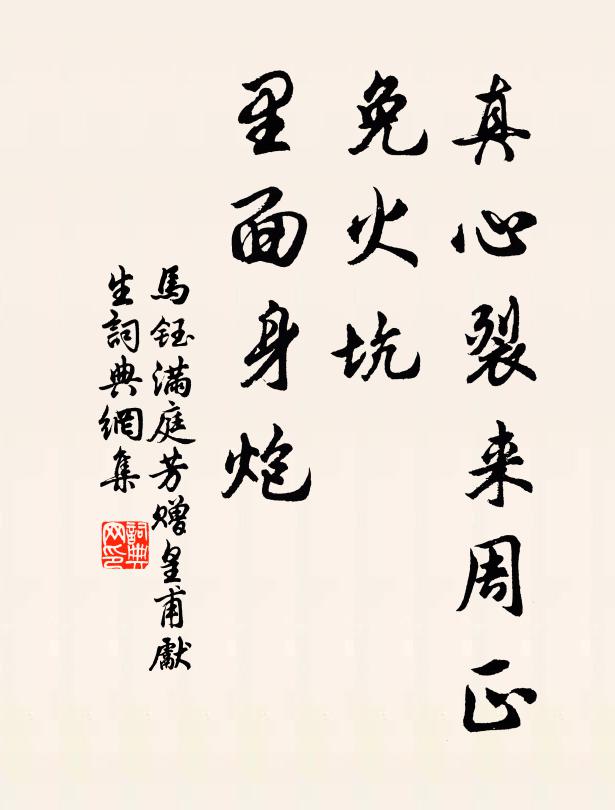 真心裂来周正
免火坑
里面身炮
馬鈺满庭芳赠皇甫獻
生詞典網集
詞典
网印